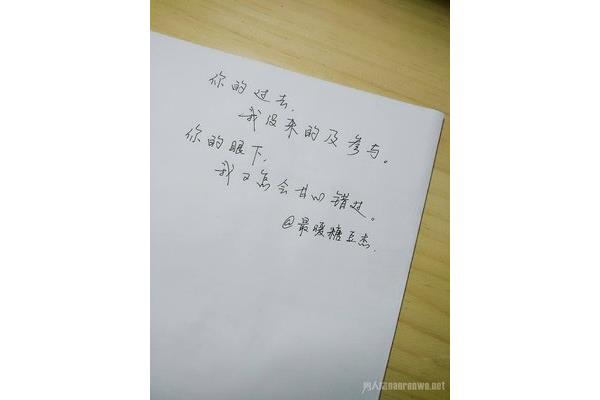 你的过去,
我没来的及参与。
你的眼下,
我又怎会甘心错过。
@最暖糖豆杰.
naorenwo.net